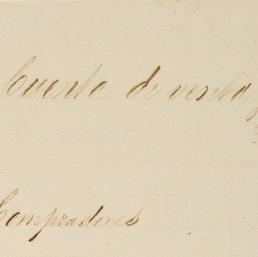 Cuenta de venta
Compradores